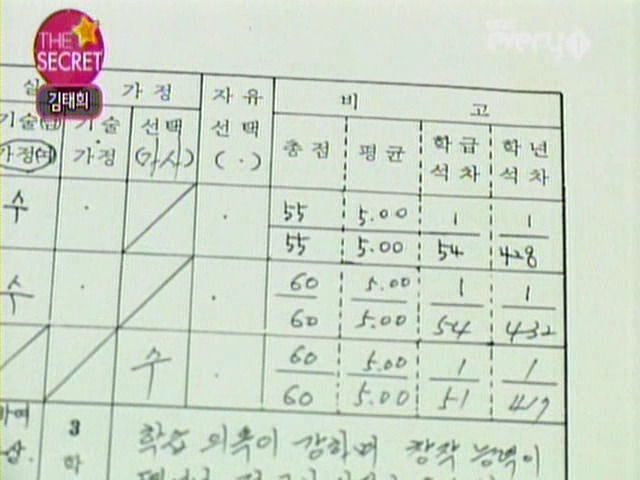 THE
SECRET
김태희
every1
실 가정 자유 비 고
기술(남) 기술 선택 선택 총점 평균 학급 학년
가정(여) 가정 (가사) ( . ) 석차 석차
수 . . 55 5.00 1 1
55 5.00 54 428
수 . . 60 5.00 1 1
60 5.00 54 432
수 . 60 5.00 1 1
60 5.00 51 417
3 학습 의욕이 강하며 창작 능력이
학